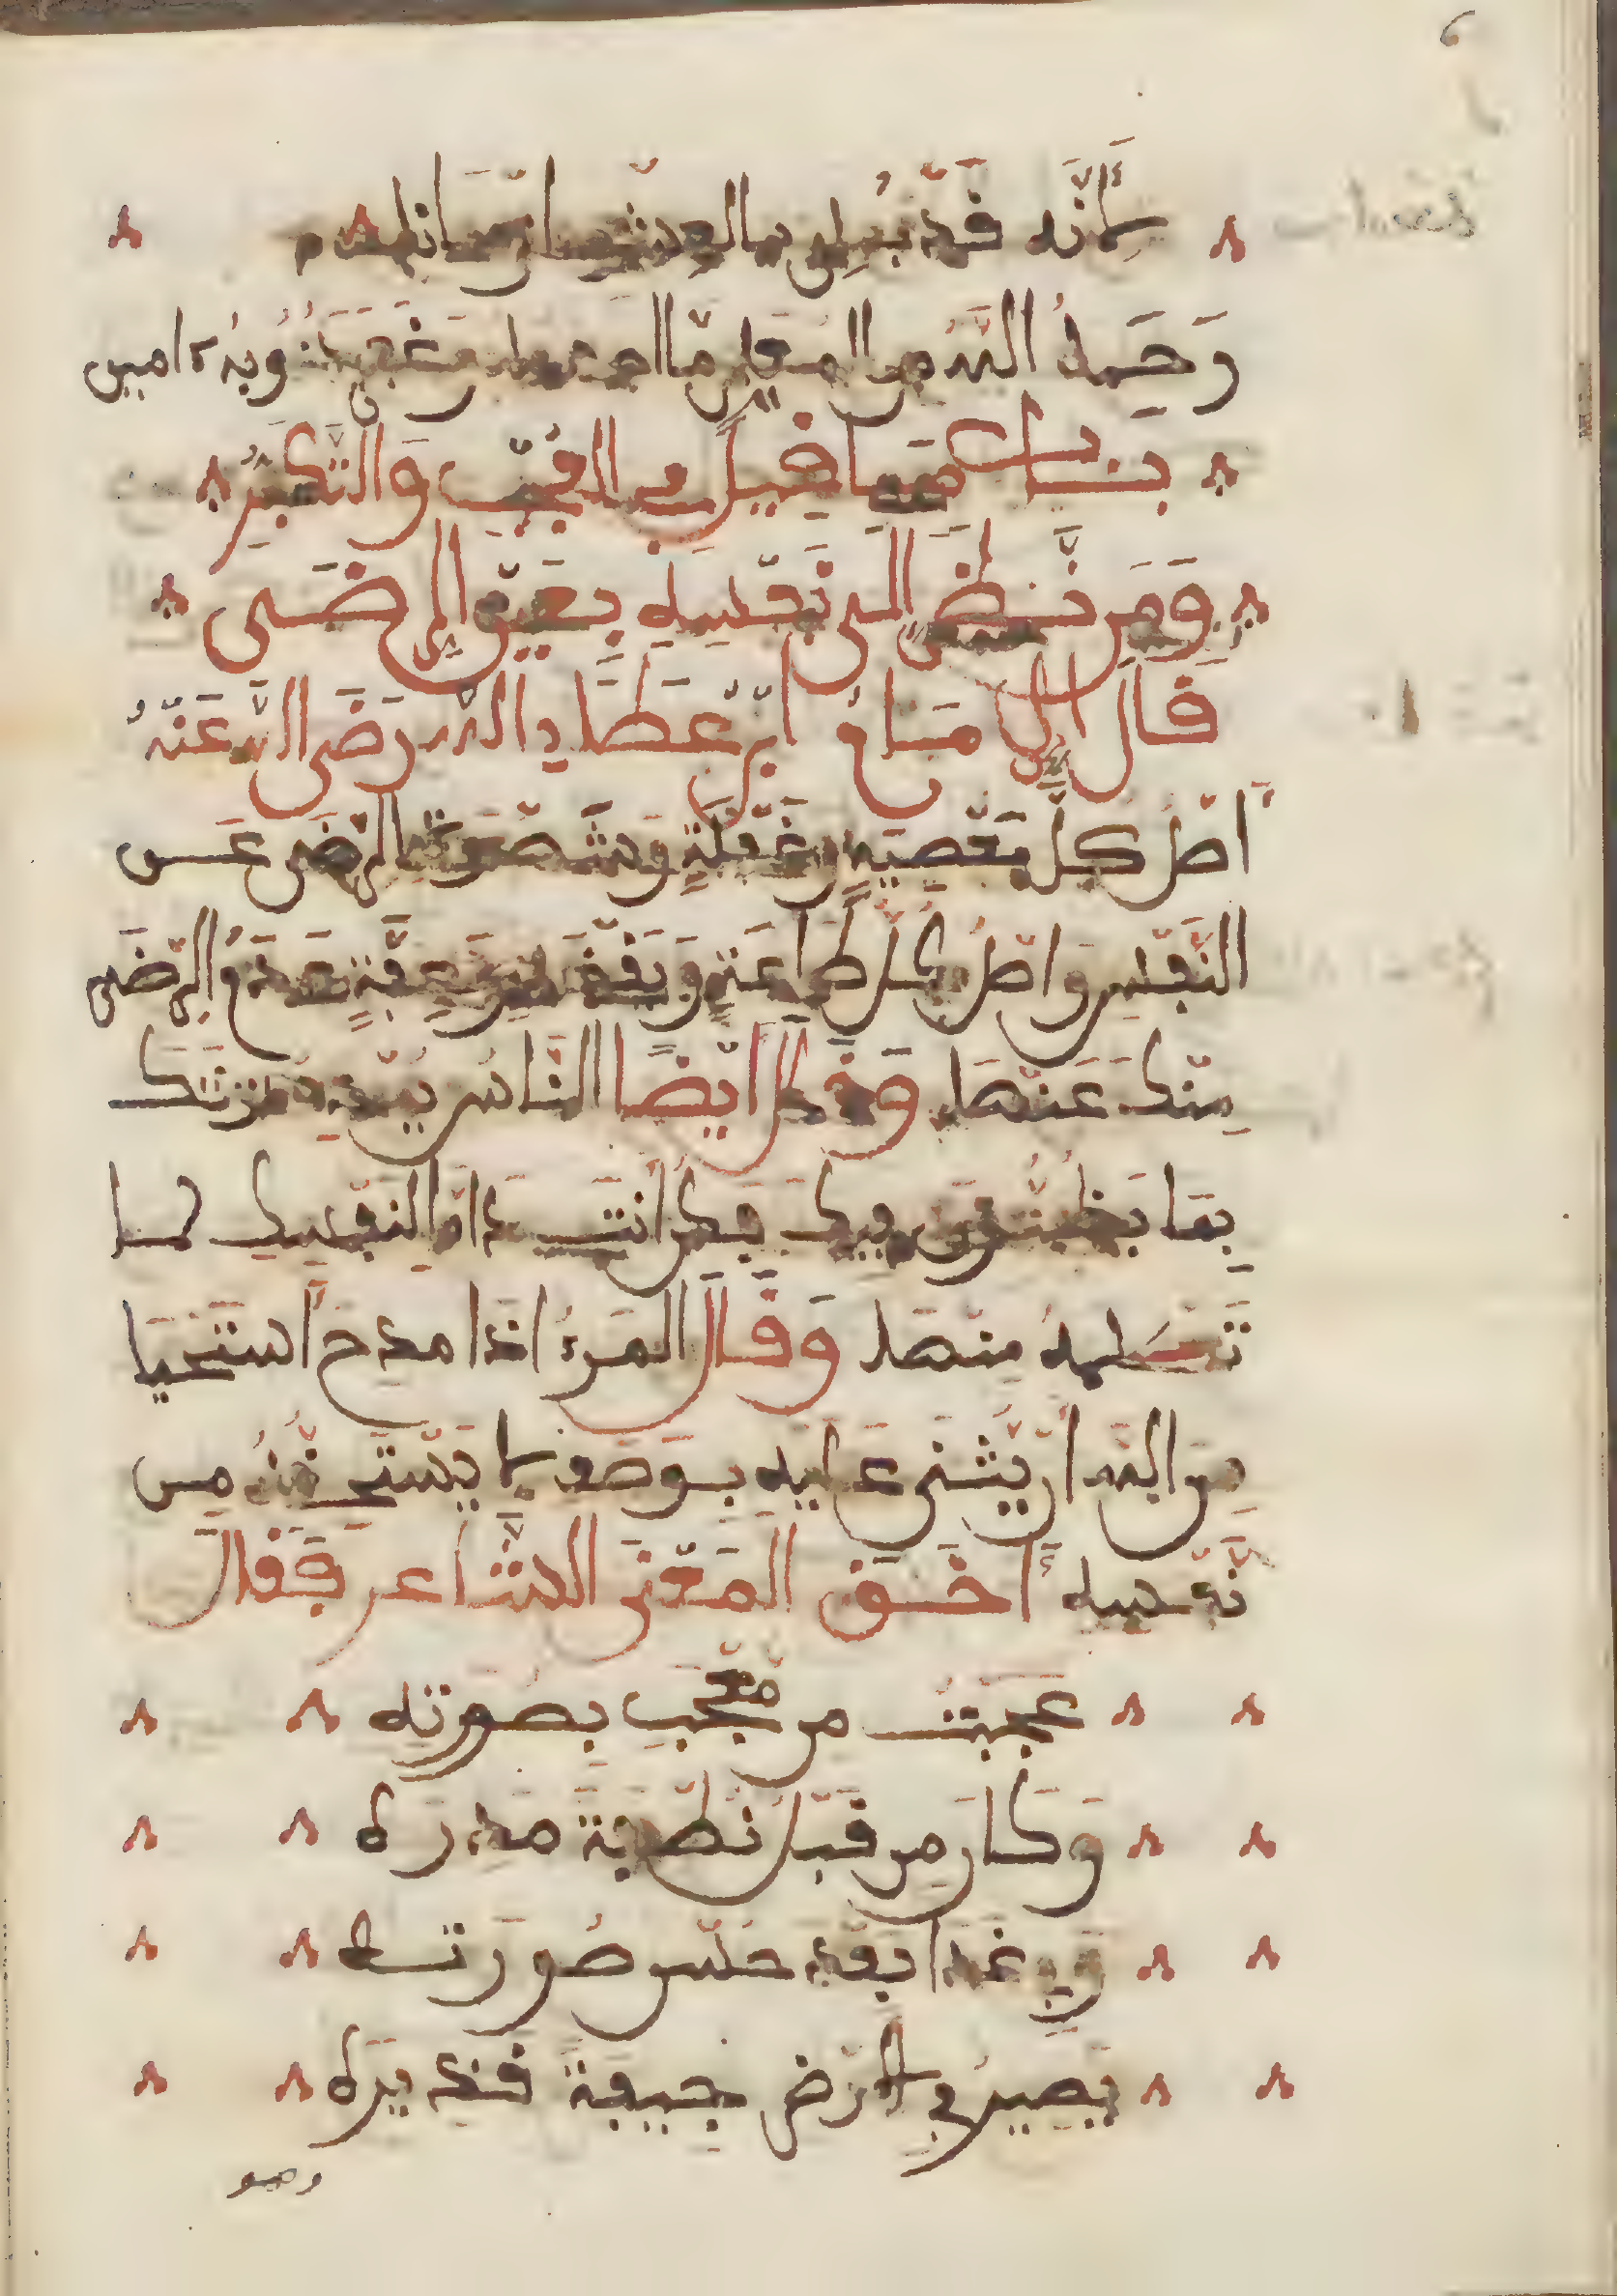 كأنه قد
رحمه الله من المعلم ما ءامين
باب مما قيل في العجب والتكبر
ومن نظر إلى نفسه بعين الرضى
قال الإمام ابن عطاء الله رضي الله عنه
أصل كل معصية وغفلة وشهوة الرضى عن
النفس وأصل كل طاعة ويقظة وعفة عدم الرضى
منك عنها وقال أيضا الناس يمدحونك
بما يظنون فيك فكن أنت ذاما لنفسك لما
تعلمه منها وقال المرء إذا مدح استحيا
من الله أن يثنى عليه بوصف لا يستحقه من
نفسه أخذ المعنى الشاعر فقال
عجبت من معجب بصورته
وكان من قبل نطفة مذره
وفي غد بعد حسن صورته
يصير في الأرض جيفة قذره
وهو